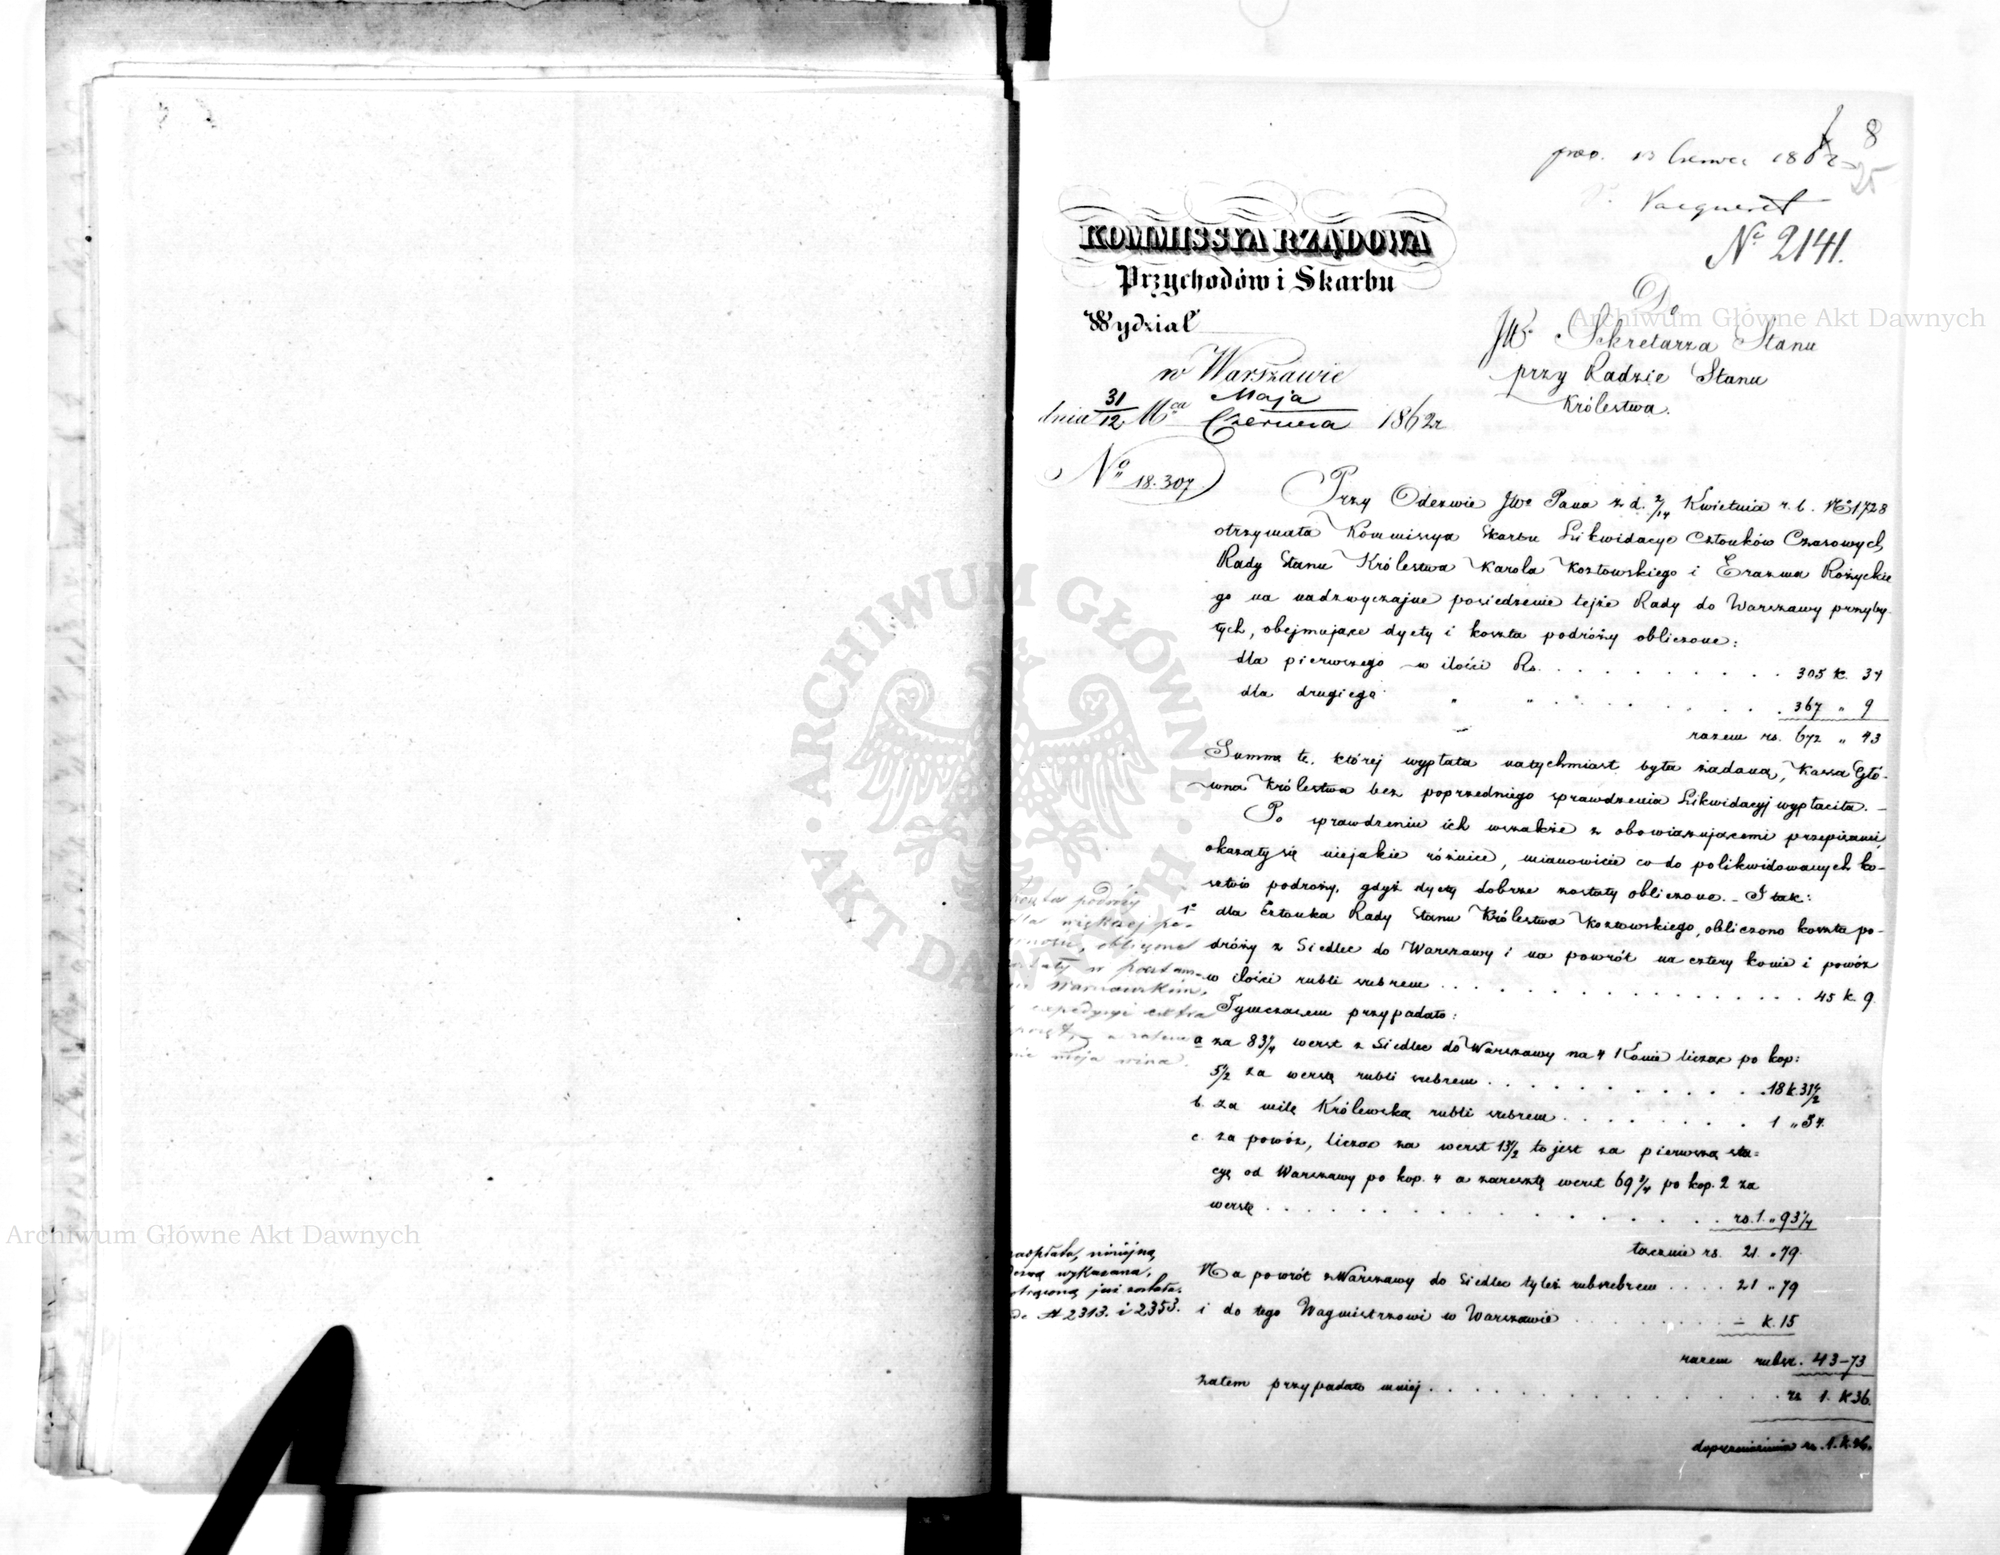 8
25
prez. 13 Czerwca 1862
№ 2141.
KOMMISSYA RZĄDOWA
Przychodów i Skarbu
Wydział
w Warszawie
dnia 31/12 Mca Maja/Czerwca 1862 r
№ 18.307
Do
JW. Sekretarza Stanu
przy Radzie Stanu
Królestwa.
Przy Odezwie JWo Pana z d. 2/14 Kwietnia r. b. № 1728
otrzymała Kommissya Skarbu Likwidacye Członków Czasowych
Rady Stanu Królestwa Karola Kozłowskiego i Erazma Różyckie
go na nadzwyczajne posiedzenie tejże Rady do Warszawy przyby-
łych, obejmujące dyety i koszta podróży obliczone:
dla pierwszego w ilości Rs. . . . . . . . . . 305 k. 34
dla drugiego " " . . . . . . . 367 " 9
razem rs. 672 " 43
Summę tę, której wypłata natychmiast była żądaną, Kassa Głó-
wna Królestwa bez poprzedniego sprawdzenia Likwidacyj wypłaciła. –
Po sprawdzeniu ich wszakże z obowiązującemi przepisami,
okazały się niejakie różnice, mianowicie co do polikwidowanych ko-
sztów podróży, gdyż dyety dobrze zostały obliczone. – I tak:
1o dla Członka Rady Stanu Królestwa Kozłowskiego, obliczono koszta po-
dróży z Siedlec do Warszawy i na powrót na cztery konie i powóz
w ilości rubli srebrem . . . . . . . . . . . . . . . . 45 k. 9.
Tymczasem przypadało:
a za 83 1/4 werst z Siedlec do Warszawy na 4 Konie licząc po kop:
5 1/2 za werstę rubli srebrem . . . . . . . . . . . 18 k. 31 1/2
b. za milę Królewską rubli srebrem . . . . . . . . 1 " 54.
c. za powóz, licząc za werst 13 1/2 to jest za pierwszą sta=
cyę od Warszawy po kop. 4 a za resztę werst 69 3/4 po kop. 2 za
werstę . . . . . . . . . . . . . . rs. 1. " 93 1/4
łącznie rs. 21. " 79.
Na powrót z Warszawy do Siedlec tyleż rubsrebrem . . . . 21 " 79
i do tego Wagmistrzowi w Warszawie . . . . . . – k. 15
razem rubsr. 43–73
zatem przypadało mniej . . . . . . . . . . . . rs 1. K 36.
do przeniesienia rs. 1. k. 36.
podróży
dla większej pe-
wności,
w pocztam-
cie Warszawskim,
expedycyi extra
a zatem
nie moja wina.
niniejszą
wykazana,
już została.
№ 2313. i 2353.
Archiwum Główne Akt Dawnych
Archiwum Główne Akt Dawnych
ARCHIWUM GŁÓWNE AKT DAWNYCH